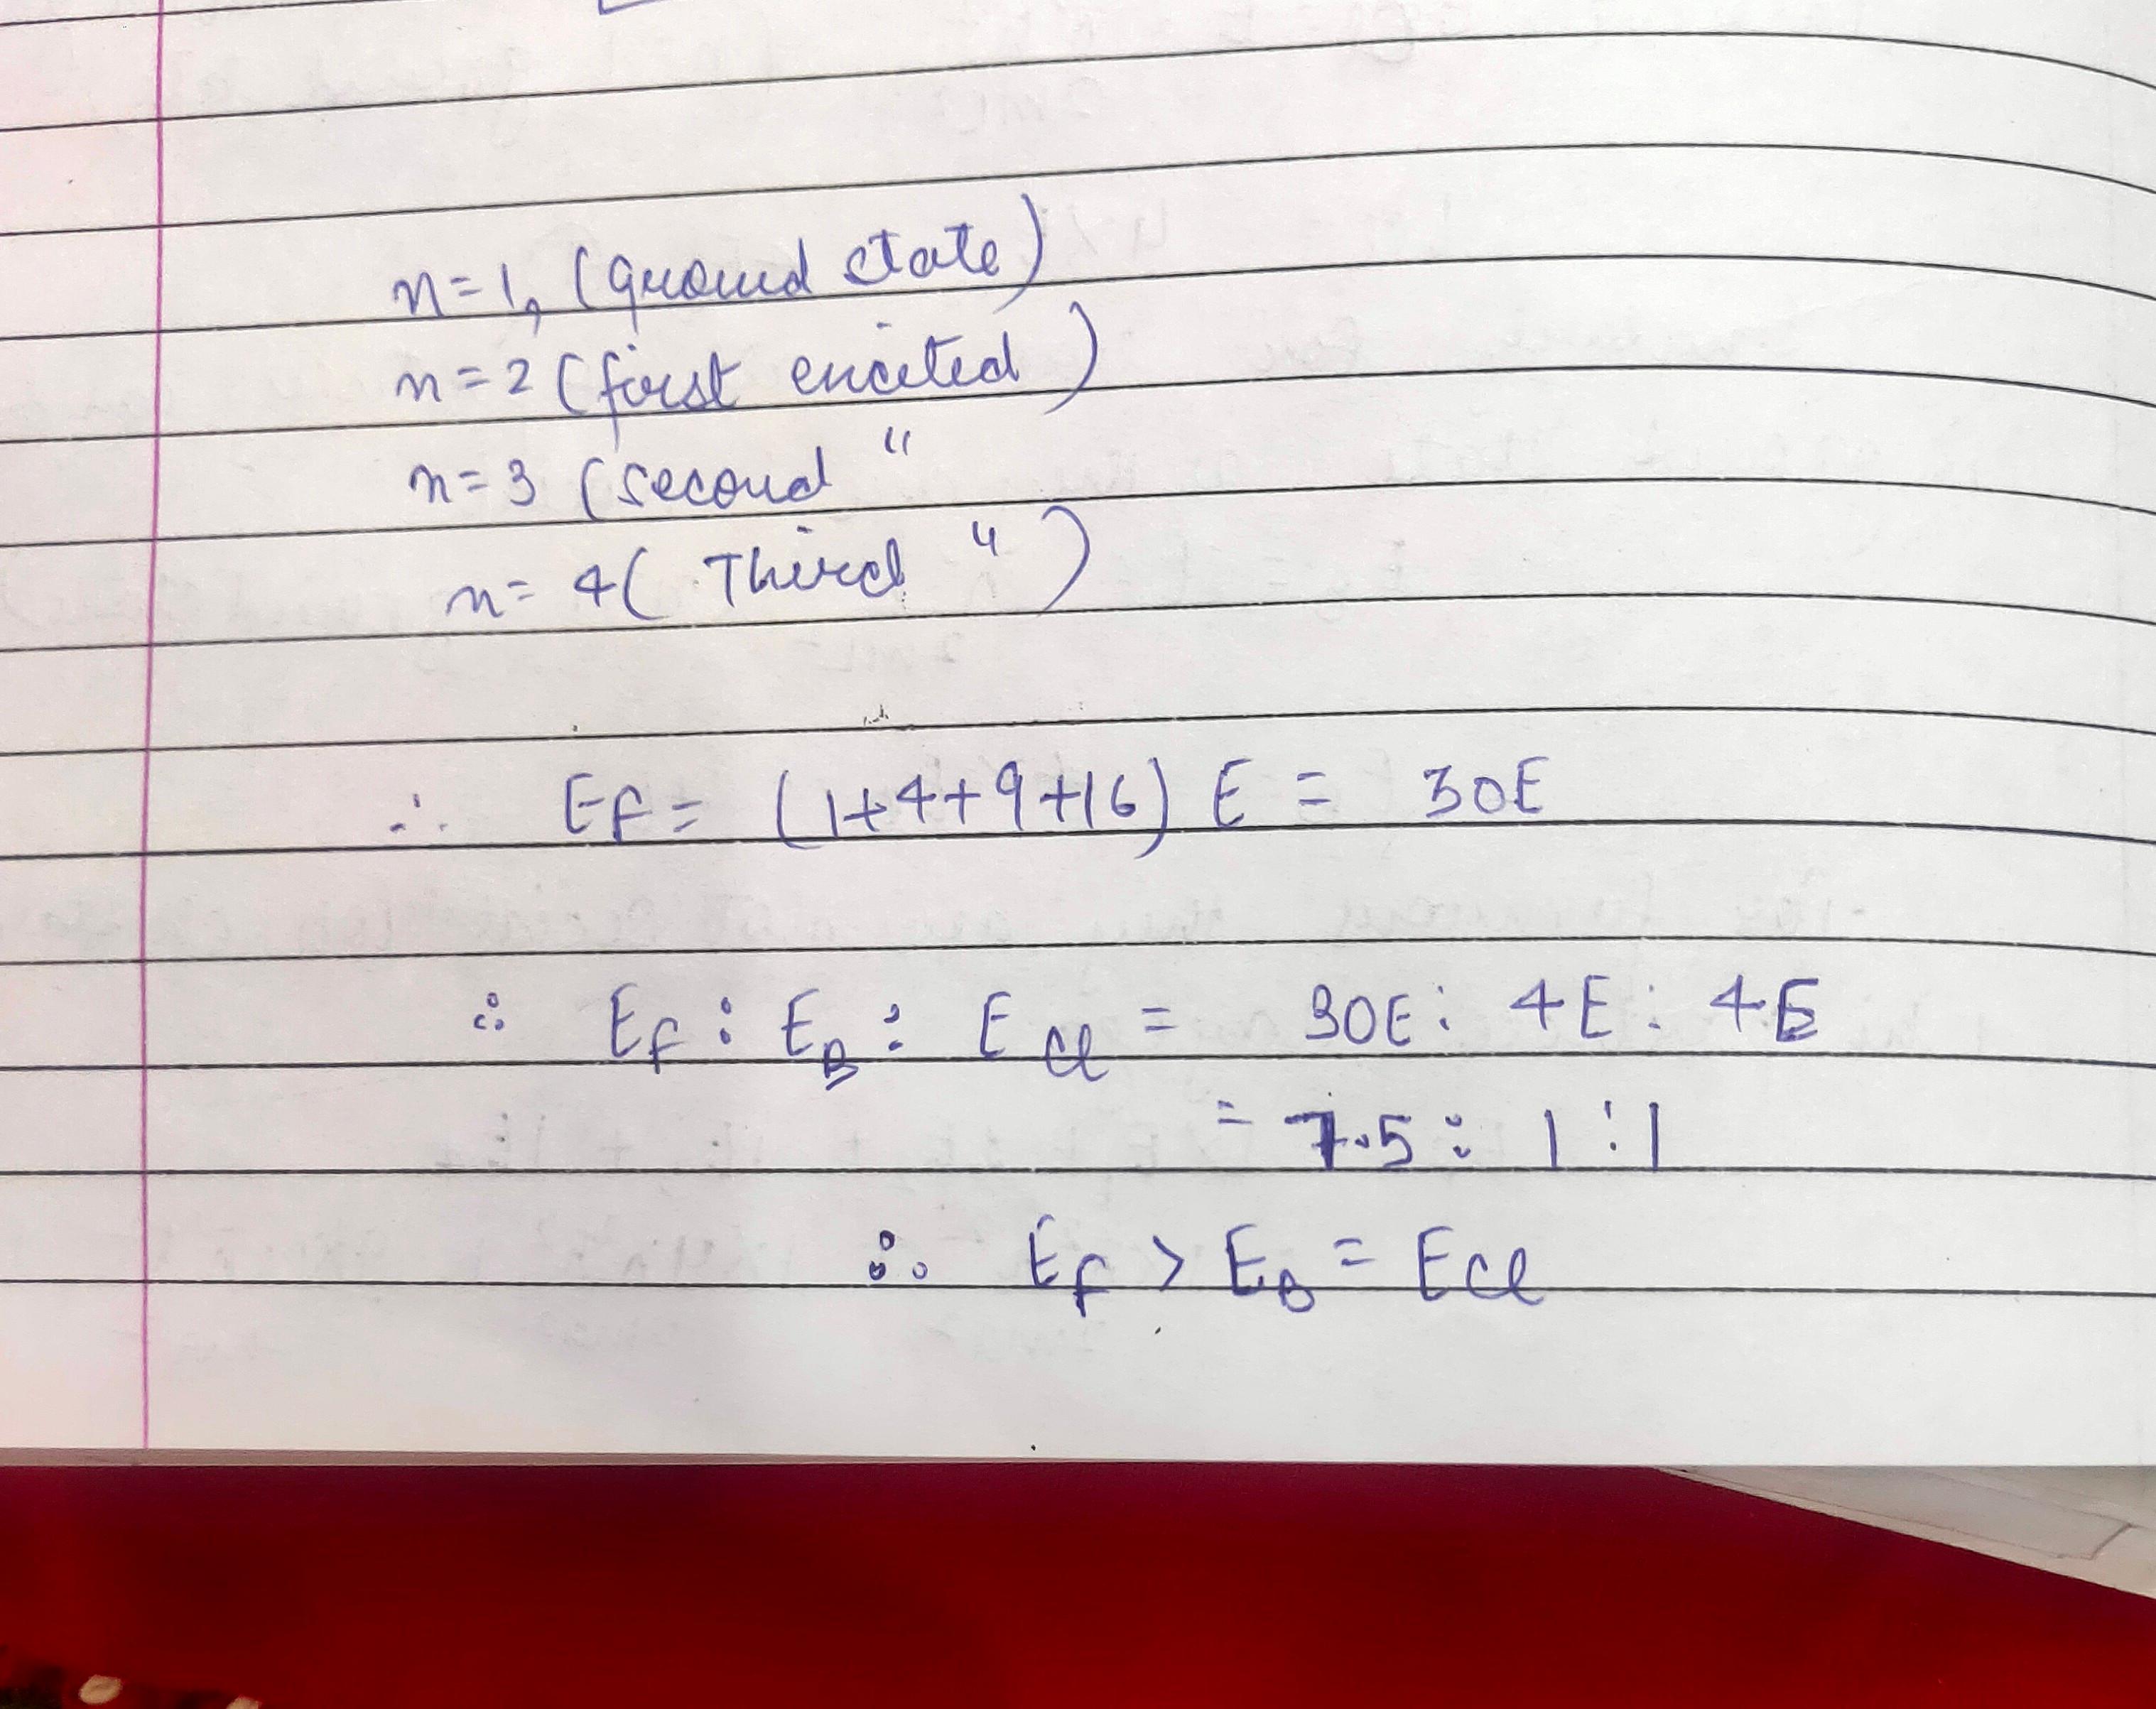 n=1, (ground state)
n=2 (first encited )
n=3 (second "
n= 4( Third " )
∴ Ef = (1+4+9+16) E = 30E
∴ Ef : EB : E cl = 30E : 4E : 4E
= 7.5 : 1 : 1
∴ Ef > EB = Ecl